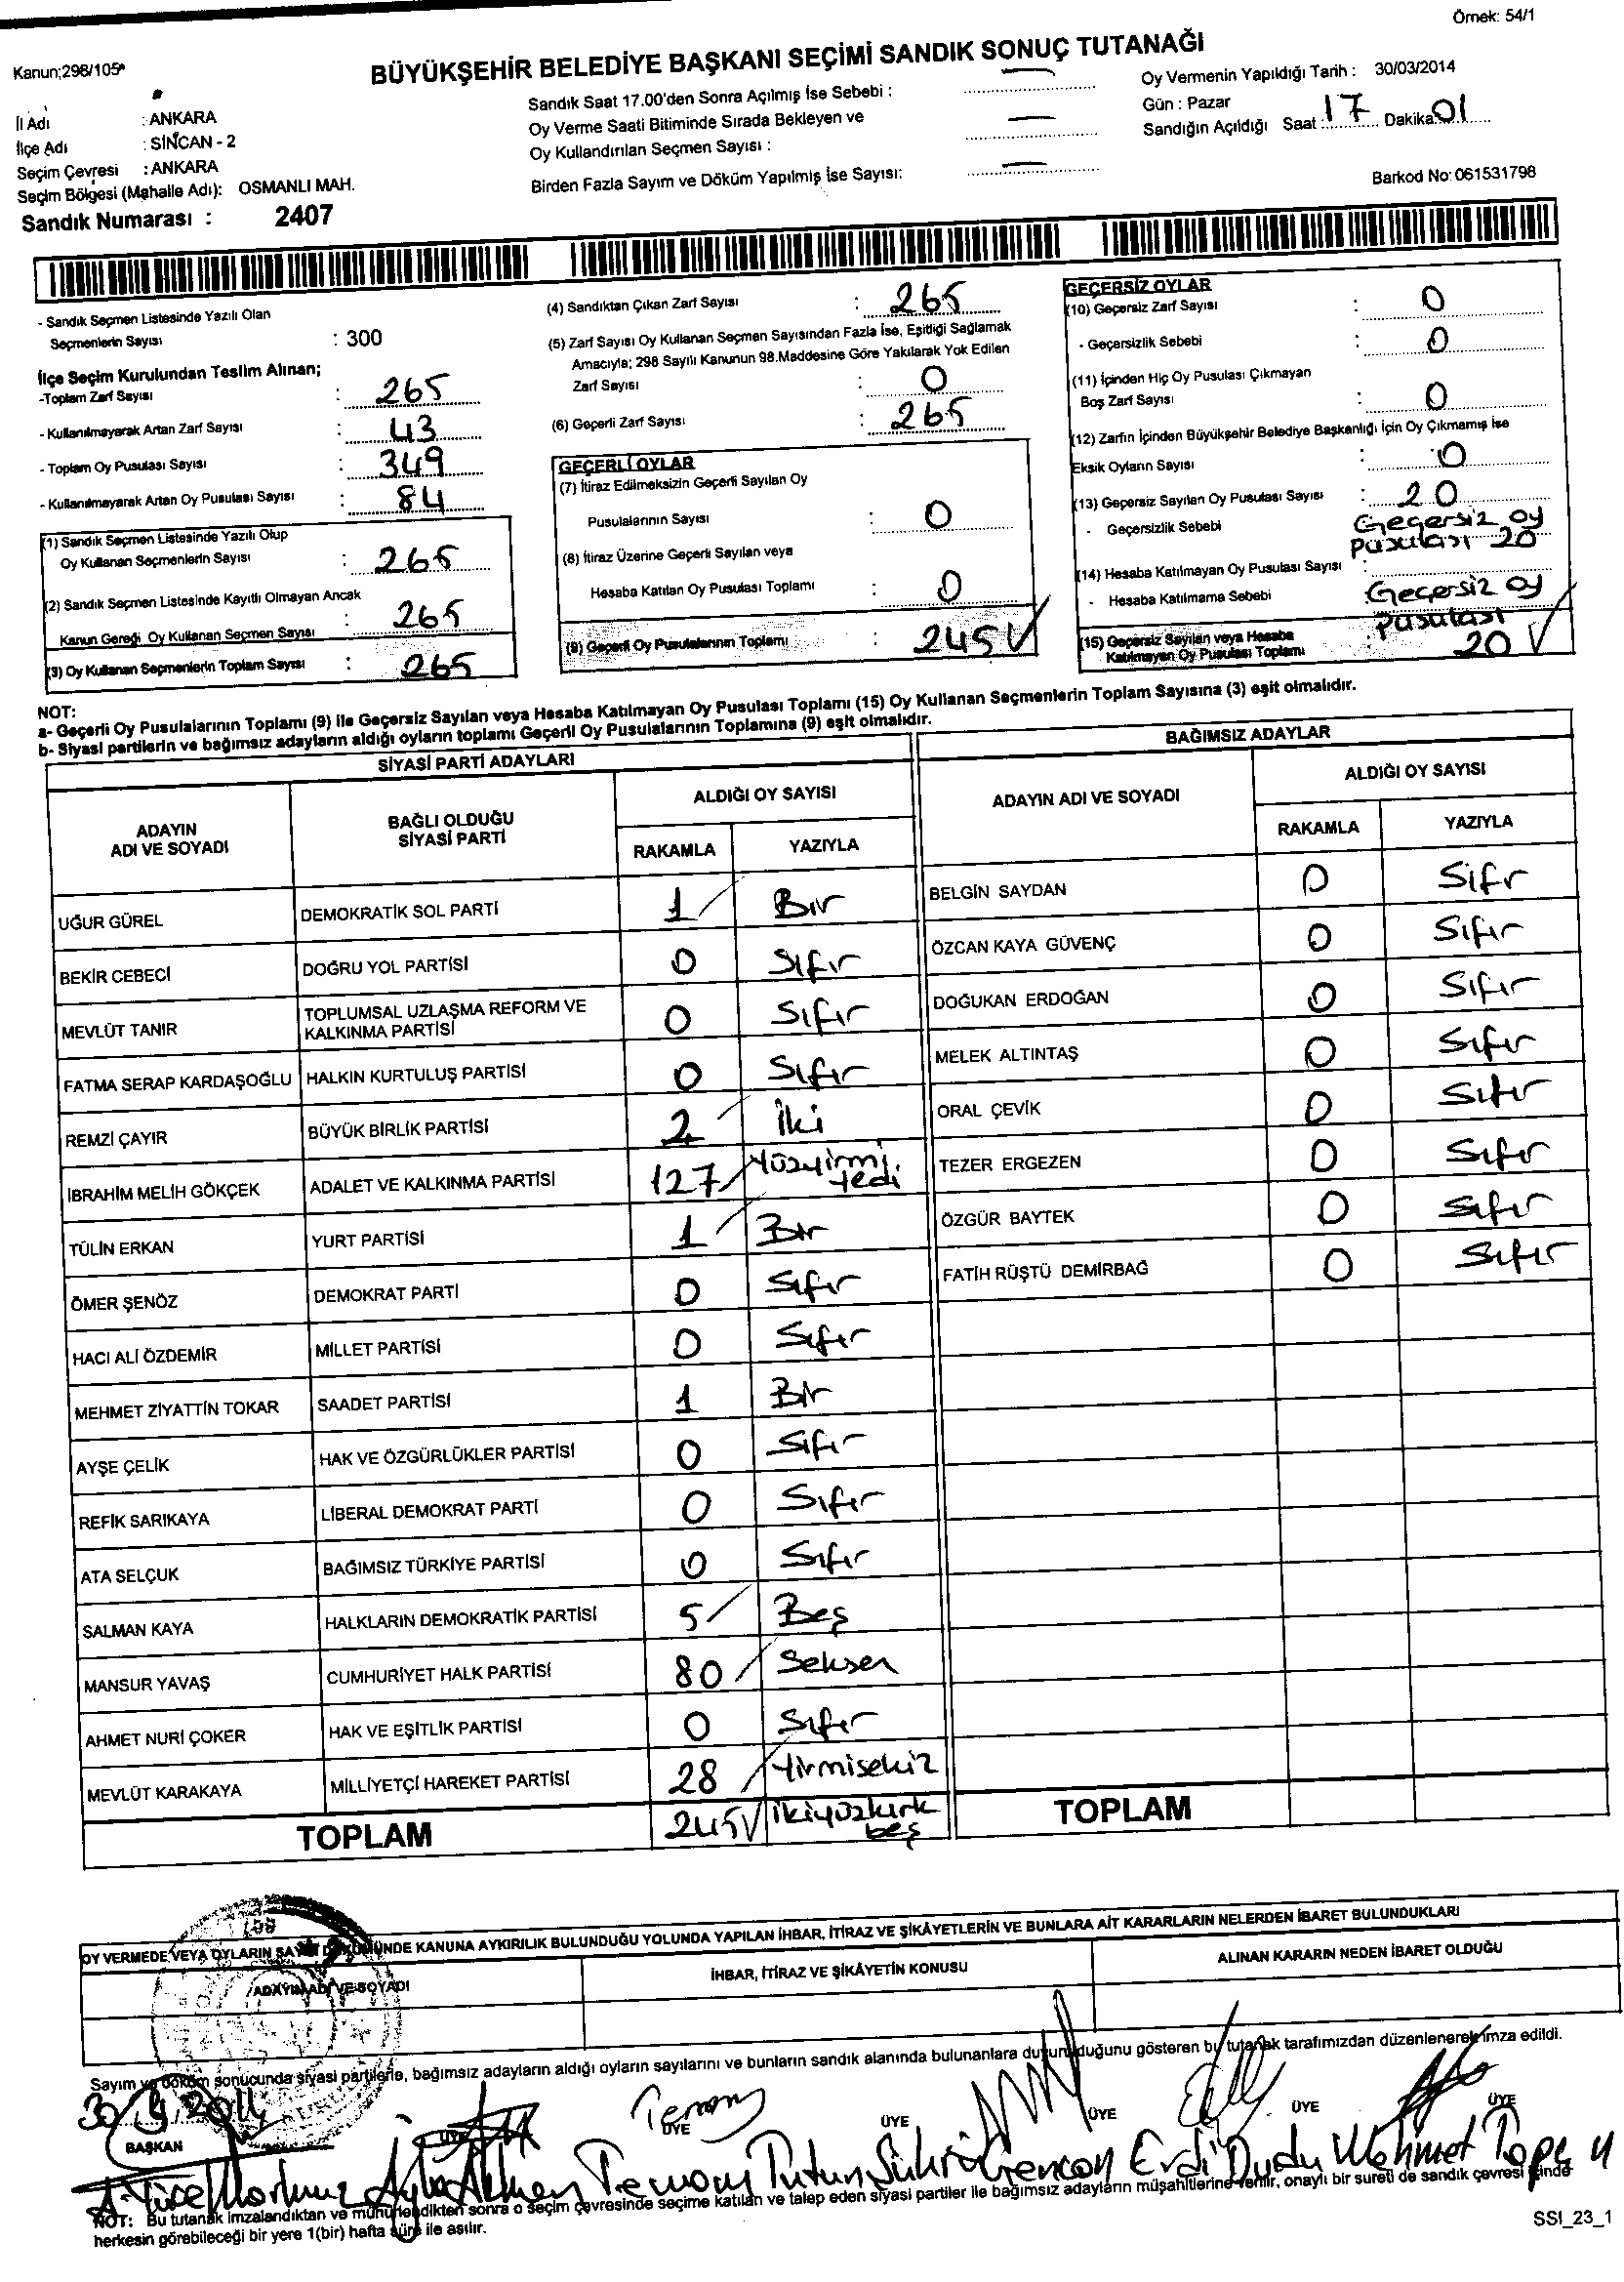 Örnek: 54/1
Kanun;298/105*
BÜYÜKŞEHİR BELEDİYE BAŞKANI SEÇİMİ SANDIK SONUÇ TUTANAĞI
İl Adı : ANKARA
İlçe Adı : SİNCAN - 2
Seçim Çevresi : ANKARA
Seçim Bölgesi (Mahalle Adı): OSMANLI MAH.
Sandık Numarası : 2407
Sandık Saat 17.00'den Sonra Açılmış İse Sebebi : —
Oy Verme Saati Bitiminde Sırada Bekleyen ve
Oy Kullandırılan Seçmen Sayısı : —
Birden Fazla Sayım ve Döküm Yapılmış İse Sayısı: —
Oy Vermenin Yapıldığı Tarih : 30/03/2014
Gün : Pazar
Sandığın Açıldığı Saat : 17 Dakika 01
Barkod No: 061531798
- Sandık Seçmen Listesinde Yazılı Olan
Seçmenlerin Sayısı : 300
İlçe Seçim Kurulundan Teslim Alınan;
-Toplam Zarf Sayısı : 265
- Kullanılmayarak Artan Zarf Sayısı : 43
- Toplam Oy Pusulası Sayısı : 349
- Kullanılmayarak Artan Oy Pusulası Sayısı : 84
(1) Sandık Seçmen Listesinde Yazılı Olup
Oy Kullanan Seçmenlerin Sayısı : 265
(2) Sandık Seçmen Listesinde Kayıtlı Olmayan Ancak
Kanun Gereği Oy Kullanan Seçmen Sayısı : 265
(3) Oy Kullanan Seçmenlerin Toplam Sayısı : 265
(4) Sandıktan Çıkan Zarf Sayısı : 265
(5) Zarf Sayısı Oy Kullanan Seçmen Sayısından Fazla İse, Eşitliği Sağlamak
Amacıyla; 298 Sayılı Kanunun 98.Maddesine Göre Yakılarak Yok Edilen
Zarf Sayısı : 0
(6) Geçerli Zarf Sayısı : 265
GEÇERLİ OYLAR
(7) İtiraz Edilmeksizin Geçerli Sayılan Oy
Pusulalarının Sayısı : 0
(8) İtiraz Üzerine Geçerli Sayılan veya
Hesaba Katılan Oy Pusulası Toplamı : 0
(9) Geçerli Oy Pusulalarının Toplamı : 245 V
GEÇERSİZ OYLAR
(10) Geçersiz Zarf Sayısı : 0
- Geçersizlik Sebebi : 0
(11) İçinden Hiç Oy Pusulası Çıkmayan
Boş Zarf Sayısı : 0
(12) Zarfın İçinden Büyükşehir Belediye Başkanlığı İçin Oy Çıkmamış İse
Eksik Oyların Sayısı : 0
(13) Geçersiz Sayılan Oy Pusulası Sayısı : 20
- Geçersizlik Sebebi Geçersiz oy
pusulası 20
(14) Hesaba Katılmayan Oy Pusulası Sayısı :
- Hesaba Katılmama Sebebi : Geçersiz oy
pusulası
(15) Geçersiz Sayılan veya Hesaba
Katılmayan Oy Pusulası Toplamı : 20 V
NOT:
a- Geçerli Oy Pusulalarının Toplamı (9) ile Geçersiz Sayılan veya Hesaba Katılmayan Oy Pusulası Toplamı (15) Oy Kullanan Seçmenlerin Toplam Sayısına (3) eşit olmalıdır.
b- Siyasi partilerin ve bağımsız adayların aldığı oyların toplamı Geçerli Oy Pusulalarının Toplamına (9) eşit olmalıdır.
SİYASİ PARTİ ADAYLARI
ADAYIN ADI VE SOYADI BAĞLI OLDUĞU SİYASİ PARTİ ALDIĞI OY SAYISI
RAKAMLA YAZIYLA
UĞUR GÜREL DEMOKRATİK SOL PARTİ 1 Bir
BEKİR CEBECİ DOĞRU YOL PARTİSİ 0 Sıfır
MEVLÜT TANIR TOPLUMSAL UZLAŞMA REFORM VE KALKINMA PARTİSİ 0 Sıfır
FATMA SERAP KARDAŞOĞLU HALKIN KURTULUŞ PARTİSİ 0 Sıfır
REMZİ ÇAYIR BÜYÜK BİRLİK PARTİSİ 2 İki
İBRAHİM MELİH GÖKÇEK ADALET VE KALKINMA PARTİSİ 127 Yüzyirmi yedi
TÜLİN ERKAN YURT PARTİSİ 1 Bir
ÖMER ŞENÖZ DEMOKRAT PARTİ 0 Sıfır
HACI ALİ ÖZDEMİR MİLLET PARTİSİ 0 Sıfır
MEHMET ZİYATTİN TOKAR SAADET PARTİSİ 1 Bir
AYŞE ÇELİK HAK VE ÖZGÜRLÜKLER PARTİSİ 0 Sıfır
REFİK SARIKAYA LİBERAL DEMOKRAT PARTİ 0 Sıfır
ATA SELÇUK BAĞIMSIZ TÜRKİYE PARTİSİ 0 Sıfır
SALMAN KAYA HALKLARIN DEMOKRATİK PARTİSİ 5 Beş
MANSUR YAVAŞ CUMHURİYET HALK PARTİSİ 80 Seksen
AHMET NURİ ÇOKER HAK VE EŞİTLİK PARTİSİ 0 Sıfır
MEVLÜT KARAKAYA MİLLİYETÇİ HAREKET PARTİSİ 28 Yirmisekiz
TOPLAM 245 V İkiyüzkırk beş
BAĞIMSIZ ADAYLAR
ADAYIN ADI VE SOYADI ALDIĞI OY SAYISI
RAKAMLA YAZIYLA
BELGİN SAYDAN 0 Sıfr
ÖZCAN KAYA GÜVENÇ 0 Sıfır
DOĞUKAN ERDOĞAN 0 Sıfır
MELEK ALTINTAŞ 0 Sıfır
ORAL ÇEVİK 0 Sıfır
TEZER ERGEZEN 0 Sıfır
ÖZGÜR BAYTEK 0 Sıfır
FATİH RÜŞTÜ DEMİRBAĞ 0 Sıfır
TOPLAM
OY VERMEDE VEYA OYLARIN SAYIM DÖKÜMÜNDE KANUNA AYKIRILIK BULUNDUĞU YOLUNDA YAPILAN İHBAR, İTİRAZ VE ŞİKÂYETLERİN VE BUNLARA AİT KARARLARIN NELERDEN İBARET BULUNDUKLARI
ADAYIN ADI VE SOYADI İHBAR, İTİRAZ VE ŞİKÂYETİN KONUSU ALINAN KARARIN NEDEN İBARET OLDUĞU
Sayım ve döküm sonucunda siyasi partilerle, bağımsız adayların aldığı oyların sayılarını ve bunların sandık alanında bulunanlara duyurulduğunu gösteren bu tutanak tarafımızdan düzenlenerek imza edildi.
30 2014
BAŞKAN ÜYE ÜYE ÜYE ÜYE ÜYE ÜYE
Temam Tutun Şükrü Gencan Erdi Dudu Mehmet
NOT: Bu tutanak imzalandıktan ve mühürlendikten sonra o seçim çevresinde seçime katılan ve talep eden siyasi partiler ile bağımsız adayların müşahitlerine verilir, onaylı bir sureti de sandık çevresi içinde
herkesin görebileceği bir yere 1(bir) hafta süre ile asılır.
SSI_23_1